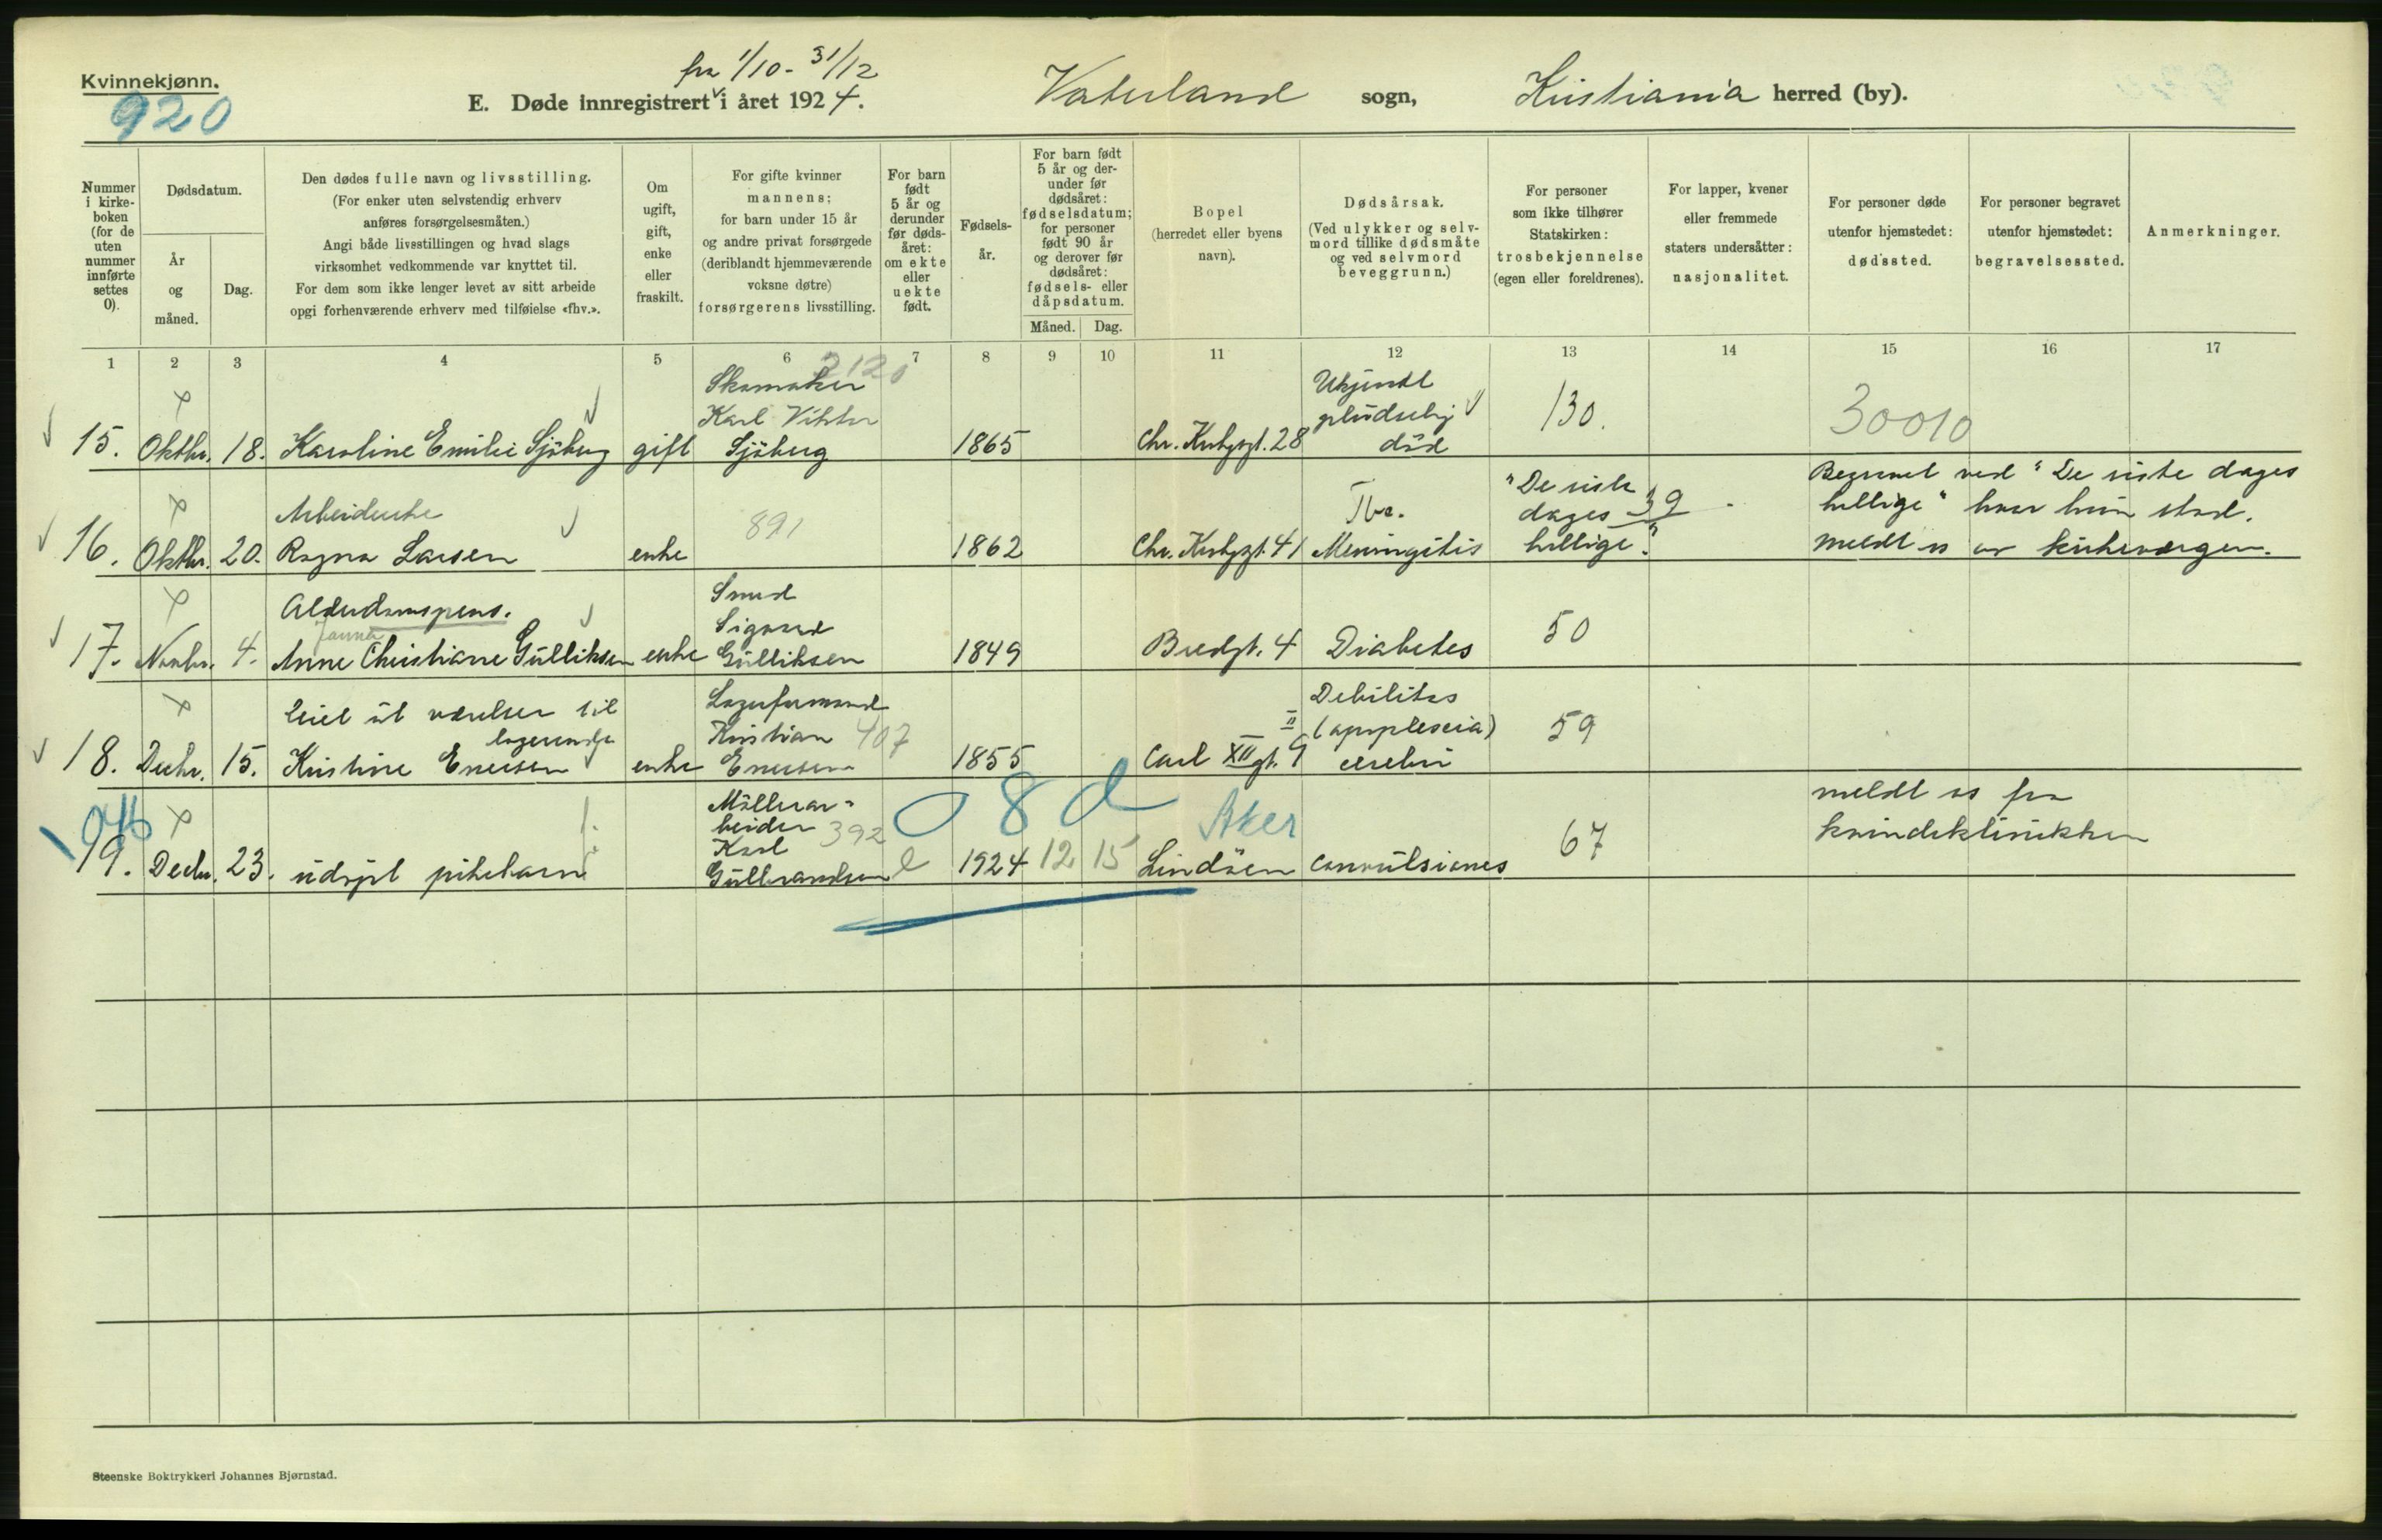 Kvinnekjønn.
920
fra 1/10 - 31/12
E. Døde innregistrert i året 1924.
Vaterland sogn, Kristiania herred (by).
Nummer i kirke-boken (for de uten nummer innførte settes 0).
Dødsdatum.
År og måned.
Dag.
Den dødes fulle navn og livsstilling.
(For enker uten selvstendig erhverv
anføres forsørgelsesmåten.)
Angi både livsstillingen og hvad slags
virksomhet vedkommende var knyttet til.
For dem som ikke lenger levet av sitt arbeide
opgi forhenværende erhverv med tilføielse «fhv.».
Om
ugift,
gift,
enke
eller
fraskilt.
For gifte kvinner
mannens;
for barn under 15 år
og andre privat forsørgede
(deriblandt hjemmeværende
voksne døtre)
forsørgerens livsstilling.
For barn
født
5 år og
derunder
før døds-
året:
om ekte
eller
uekte
født.
Fødsels-
år.
For barn født
5 år og der-
under før
dødsåret:
fødselsdatum;
for personer
født 90 år
og derover før
dødsåret:
fødsels- eller
dåpsdatum.
Måned. Dag.
Bopel
(herredet eller byens
navn).
Dødsårsak.
(Ved ulykker og selv-
mord tillike dødsmåte
og ved selvmord
beveggrunn.)
For personer
som ikke tilhører
Statskirken:
trosbekjennelse
(egen eller foreldrenes).
For lapper, kvener
eller fremmede
staters undersåtter:
nasjonalitet.
For personer døde
utenfor hjemstedet:
dødssted.
For personer begravet
utenfor hjemstedet:
begravelsessted.
Anmerkninger.
1 2 3 4 5 6 7 8 9 10 11 12 13 14 15 16 17
2120
Skomaker
Karl Viktor
Sjöberg
15. Oktbr. 18. Karoline Emilie Sjöberg gift
1865
Chr. Krohgsgt. 28
Ukjendt
pludselig
död
130.
30010
Arbeiderske
16. Oktbr. 20. Ragna Larsen enke
891
1862
Chr. Krohgsgt. 41
Tbc.
Meningitis
"De siste
dages 39
hellige"
Begravet ved "De siste dages
hellige" hvor hun stod.
meldt os av kirkevergen.
Alderdomspens.
Janna
17. Novbr. 4. Anne Christiane Gulliksen enke
Smed
Sigvard
Gulliksen
1849
Bredgt. 4
Diabetes
50
leiet ut værelser til
logerende
18. Decbr. 15. Kristine Enersen enke
Lagerformand
Kristian 407
Enersen
1855
Carl XII gt. 9
Debilitas
(apoplexia)
cerebri
59
19. Decbr. 23. udøpt pikebarn
Möllerar-
beider 392
Karl
Gulbrandsen
e 1924 12 15
08d
Aker
Lindöen
convulsiones
67
meldt os fra
kvindeklinikken
Steenske Boktrykkeri Johannes Bjørnstad.